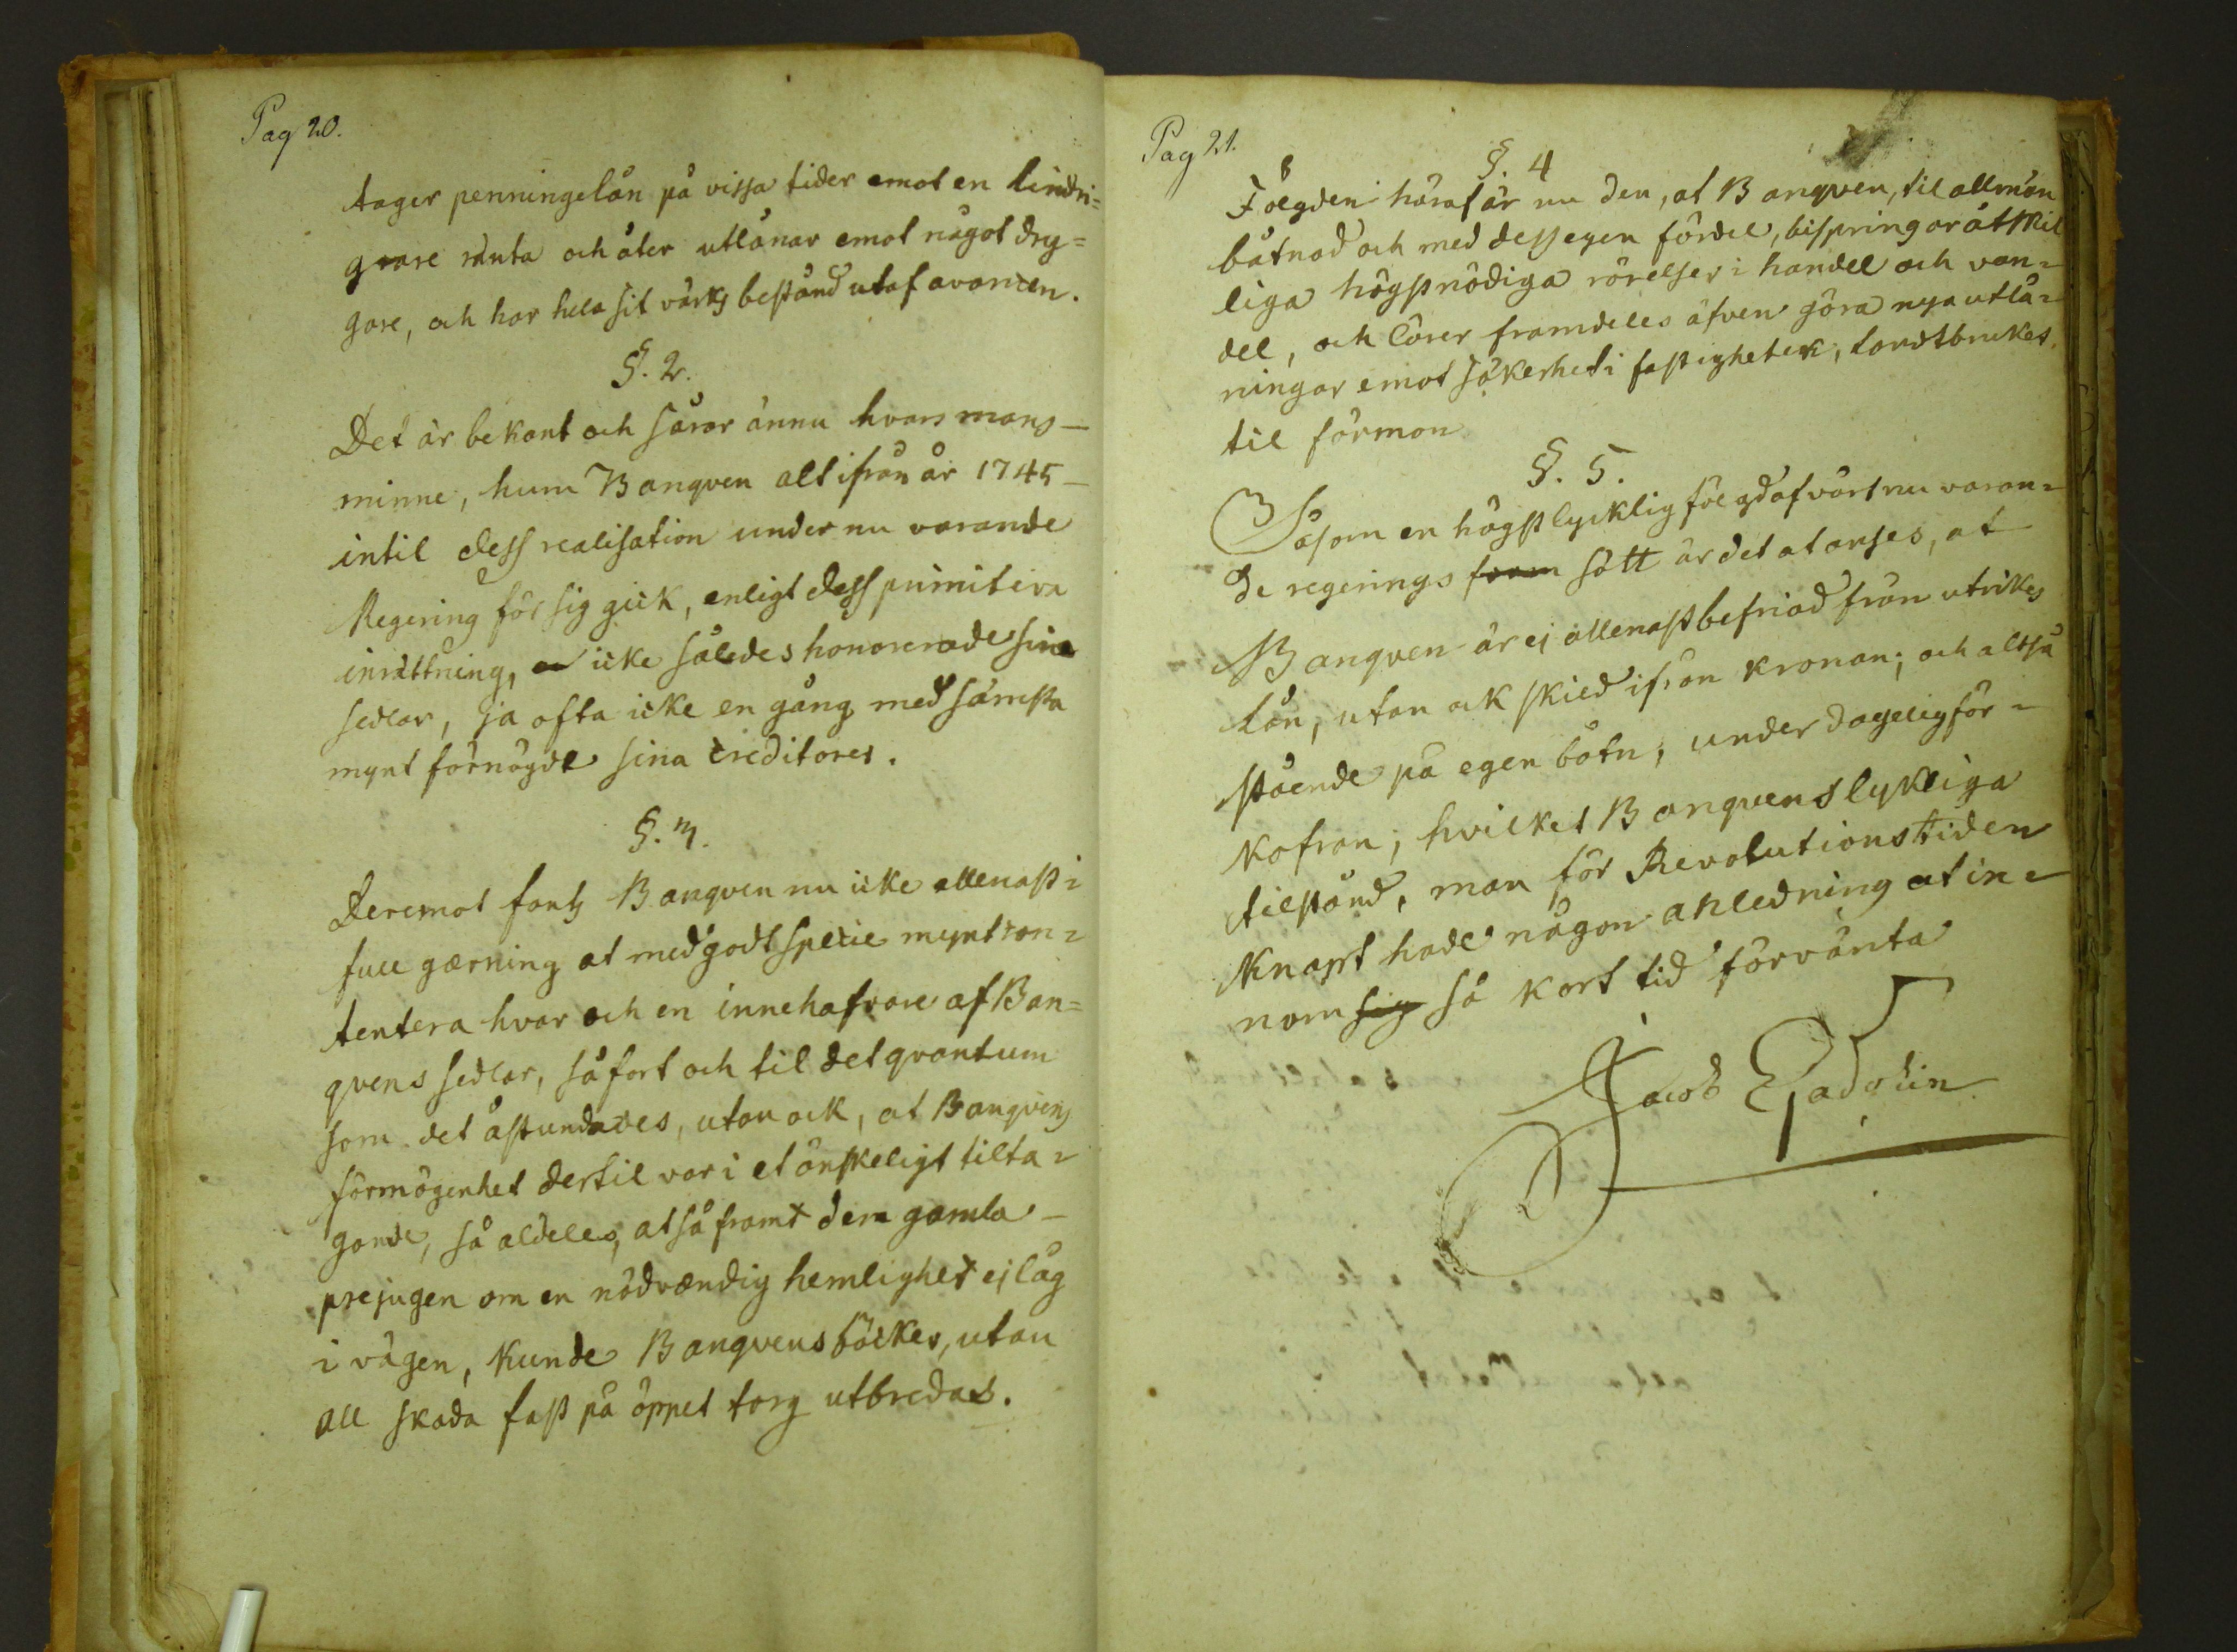 Pag 20.
tager penningelån på vissa tider emot en lindri=
gare ränta och åter utlånar emot något dry=
gare, och har hela sit värks bestånd utaf avancen.
§. 2.
Det är bekant och sårar ännu hvars mans
minne, huru Banqven alt ifrån år 1745
intil dess realisation under nu varande
Regering för sig gick, enligt dess primitiva
inrättning, icke således honorerade sina
sedlar, ja ofta icke en gång med sämsta
mynt förnögde sina Creditorer.
§. 3.
Deremot fants Banqven nu icke allenast i
full gærning at med godt specie mynt con=
tentera hvar och en innehafvare af Ban=
qvens sedlar, så fort och til det qvantum
som det åstundades, utan ock, at Banqvens
förmögenhet dertil var i et önskeligt tilta=
gande, så aldeles, at så framt den gamla
prejugen om en nödvændig hemlighet ej låg
i vägen, kunde Banqvens böcker, utan
all skada fast på öppet torg utbredas.
Pag 21.
§. 4
Fölgden häraf är nu den, at Banqven, til allmän
båtnad och med dess egen fördel, bispringar åtskil
liga högstnödiga rörelser i handel och van=
del, och lärer framdeles äfven göra nya utlå=
ningar emot säkerhet i fastigheter, landtbrukets
til förmon
§. 5.
Såsom en högst lycklig fölgd af vårt nu varan=
de regerings form sätt är det at anses, at
Banqven är ej allenast befriad från utrikes
lån, utan ock skild ifrån kronan; och altså
stående på egen botn, under dagelig för=
kofran; hvilket Banqvens lykliga
tilstånd, man för Revolutionstiden
knapt hade någon anledning at in=
nom sig så kort tid förvänta
Jacob Gadolin